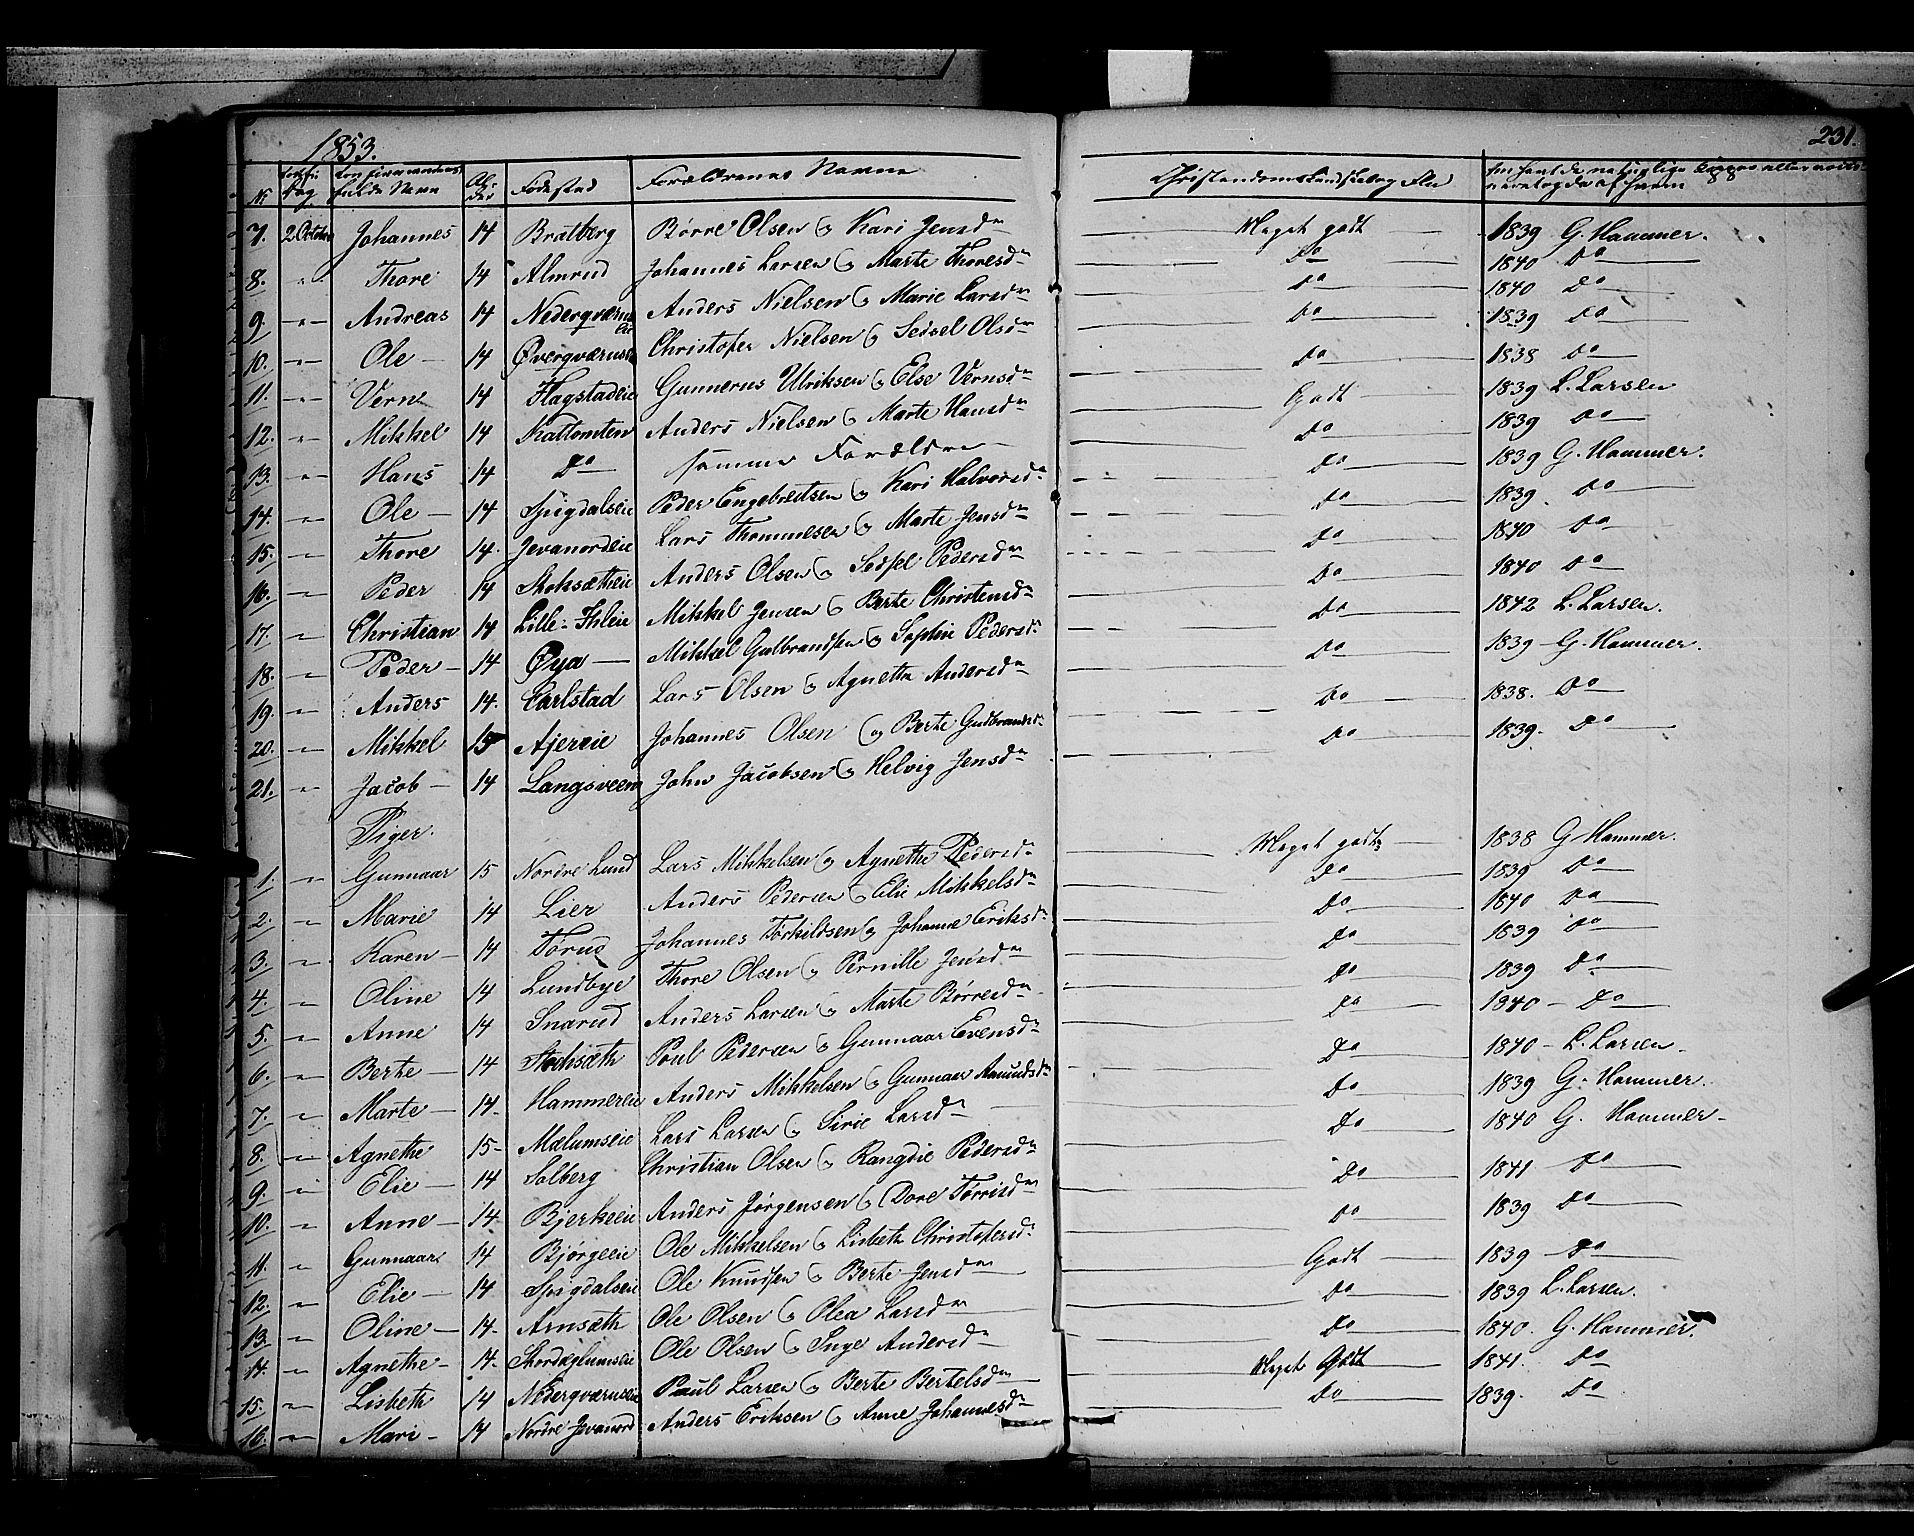 1853.
231.
Nr. Confir. Dag Confirmandens fulde Navn Alder Fødested Forældrenes Navne Christendomskundskab og Flid
7. 2 October Johannes 14 Bratberg Børre Olsen og Kari Jensdr Meget godt 1839 G. Hammer.
8. " Thore 14 Almrud Johannes Larsen og Marte Thoresdr Do 1840 Do
9. " Andreas 14 Nederqværns Eie Anders Nielsen og Marie Larsdr Do 1840 Do
10. " Ole 14 Øverqværnseie Christofer Nielsen og Sedsel Olsdr Do 1839 Do
11. " Vern 14 Flagstadeie Gunnerus Ulriksen og Else Vernsdr Do 1838 Do
12. " Mikkel 14 Kattomten Anders Nielsen og Marte Hansdr Godt 1839 L. Larsen
13. " Hans 14 Do samme Forældre Do 1839 Do
14. " Ole 14 Spigdalseie Peder Engebretsen og Kari Halvorsdr Do 1839 G. Hammer.
15. " Thore 14. Jevanordeie Lars Thommesen og Marte Jensdr Do 1839. Do
16. " Peder 14 Stoksætheie Anders Olsen og Sedsel Pedersdr Do 1840 Do
17. " Christian 14 Lille-Ihleie Mikkel Jensen og Berte Christensdr Do 1840 Do
18. " Peder 14 Øya Mikkel Gulbrandsen og Sophie Pedersdr Do 1842 L. Larsen.
19. " Anders 14. Carlstad Lars Olsen og Agnethe Andersdr Do 1839 G. Hammer.
20. " Mikkel 15 Ajereie Johannes Olsen og Berte Gudbrandsdr Do 1838. Do
21. " Jacob 14 Langsveen John Jacobsen og Helvig Jensdr Do 1839. Do
Piger.
1. " Gunnaar 15 Nordre Lund Lars Mikkelsen og Agnethe Pedersdr Meget godt 1838 G Hammer.
2. " Marie 14 Lier Anders Pedersen og Elie Mikkelsdr Do 1839 Do
3. " Karen 14 Torud Johannes Torkildsen og Johanne Eriksdr Do 1840 Do
4. " Oline 14 Lundbye Thore Olsen og Pernille Jensdr Do 1839 Do
5. " Anne 14 Snarud Anders Larsen og Marte Børresdr Do 1839 Do
6. " Berte 14 Stoksæth Poul Pedersen og Gunnaar Evensdr Do 1840 Do
7. " Marte 14. Hammereie Anders Mikkelsen og Gunnaar Amundsdr Do 1840 L. Larsen
8. " Agnethe 15 Mælumseie Lars Larsen og Sirie Larsdr Do 1839 G. Hammer
9. " Elie 14 Solberg Christian Olsen og Rangdie Pedersdr Do 1840 G. Hammer
10. " Anne 14. Bjerkeeie Anders Jørgensen og Dore Torrisdr Do 1841 Do
11. " Gunnaar 14 Bjørgeeie Ole Mikkelsen og Lisbeth Christofersdr Do 1839 Do
12. " Elie 14 Spigdalseie Ole Knudsen og Berte Jensdr Godt 1839 Do
13. " Oline 14. Arnsæth Ole Olsen og Olea Larsdr Do 1839 L. Larsen.
14. " Agnethe 14. Ole Olsen og Inge Andersdr Do 1840. G. Hammer.
15. " Lisbeth 14 Nederqværnseie Paul Larsen og Berte Bertelsdr Meget Godt 1841. Do
16. " Mari 14 Nordre Jevanord Anders Eriksen og Anne Johannesdr Do 1839. Do